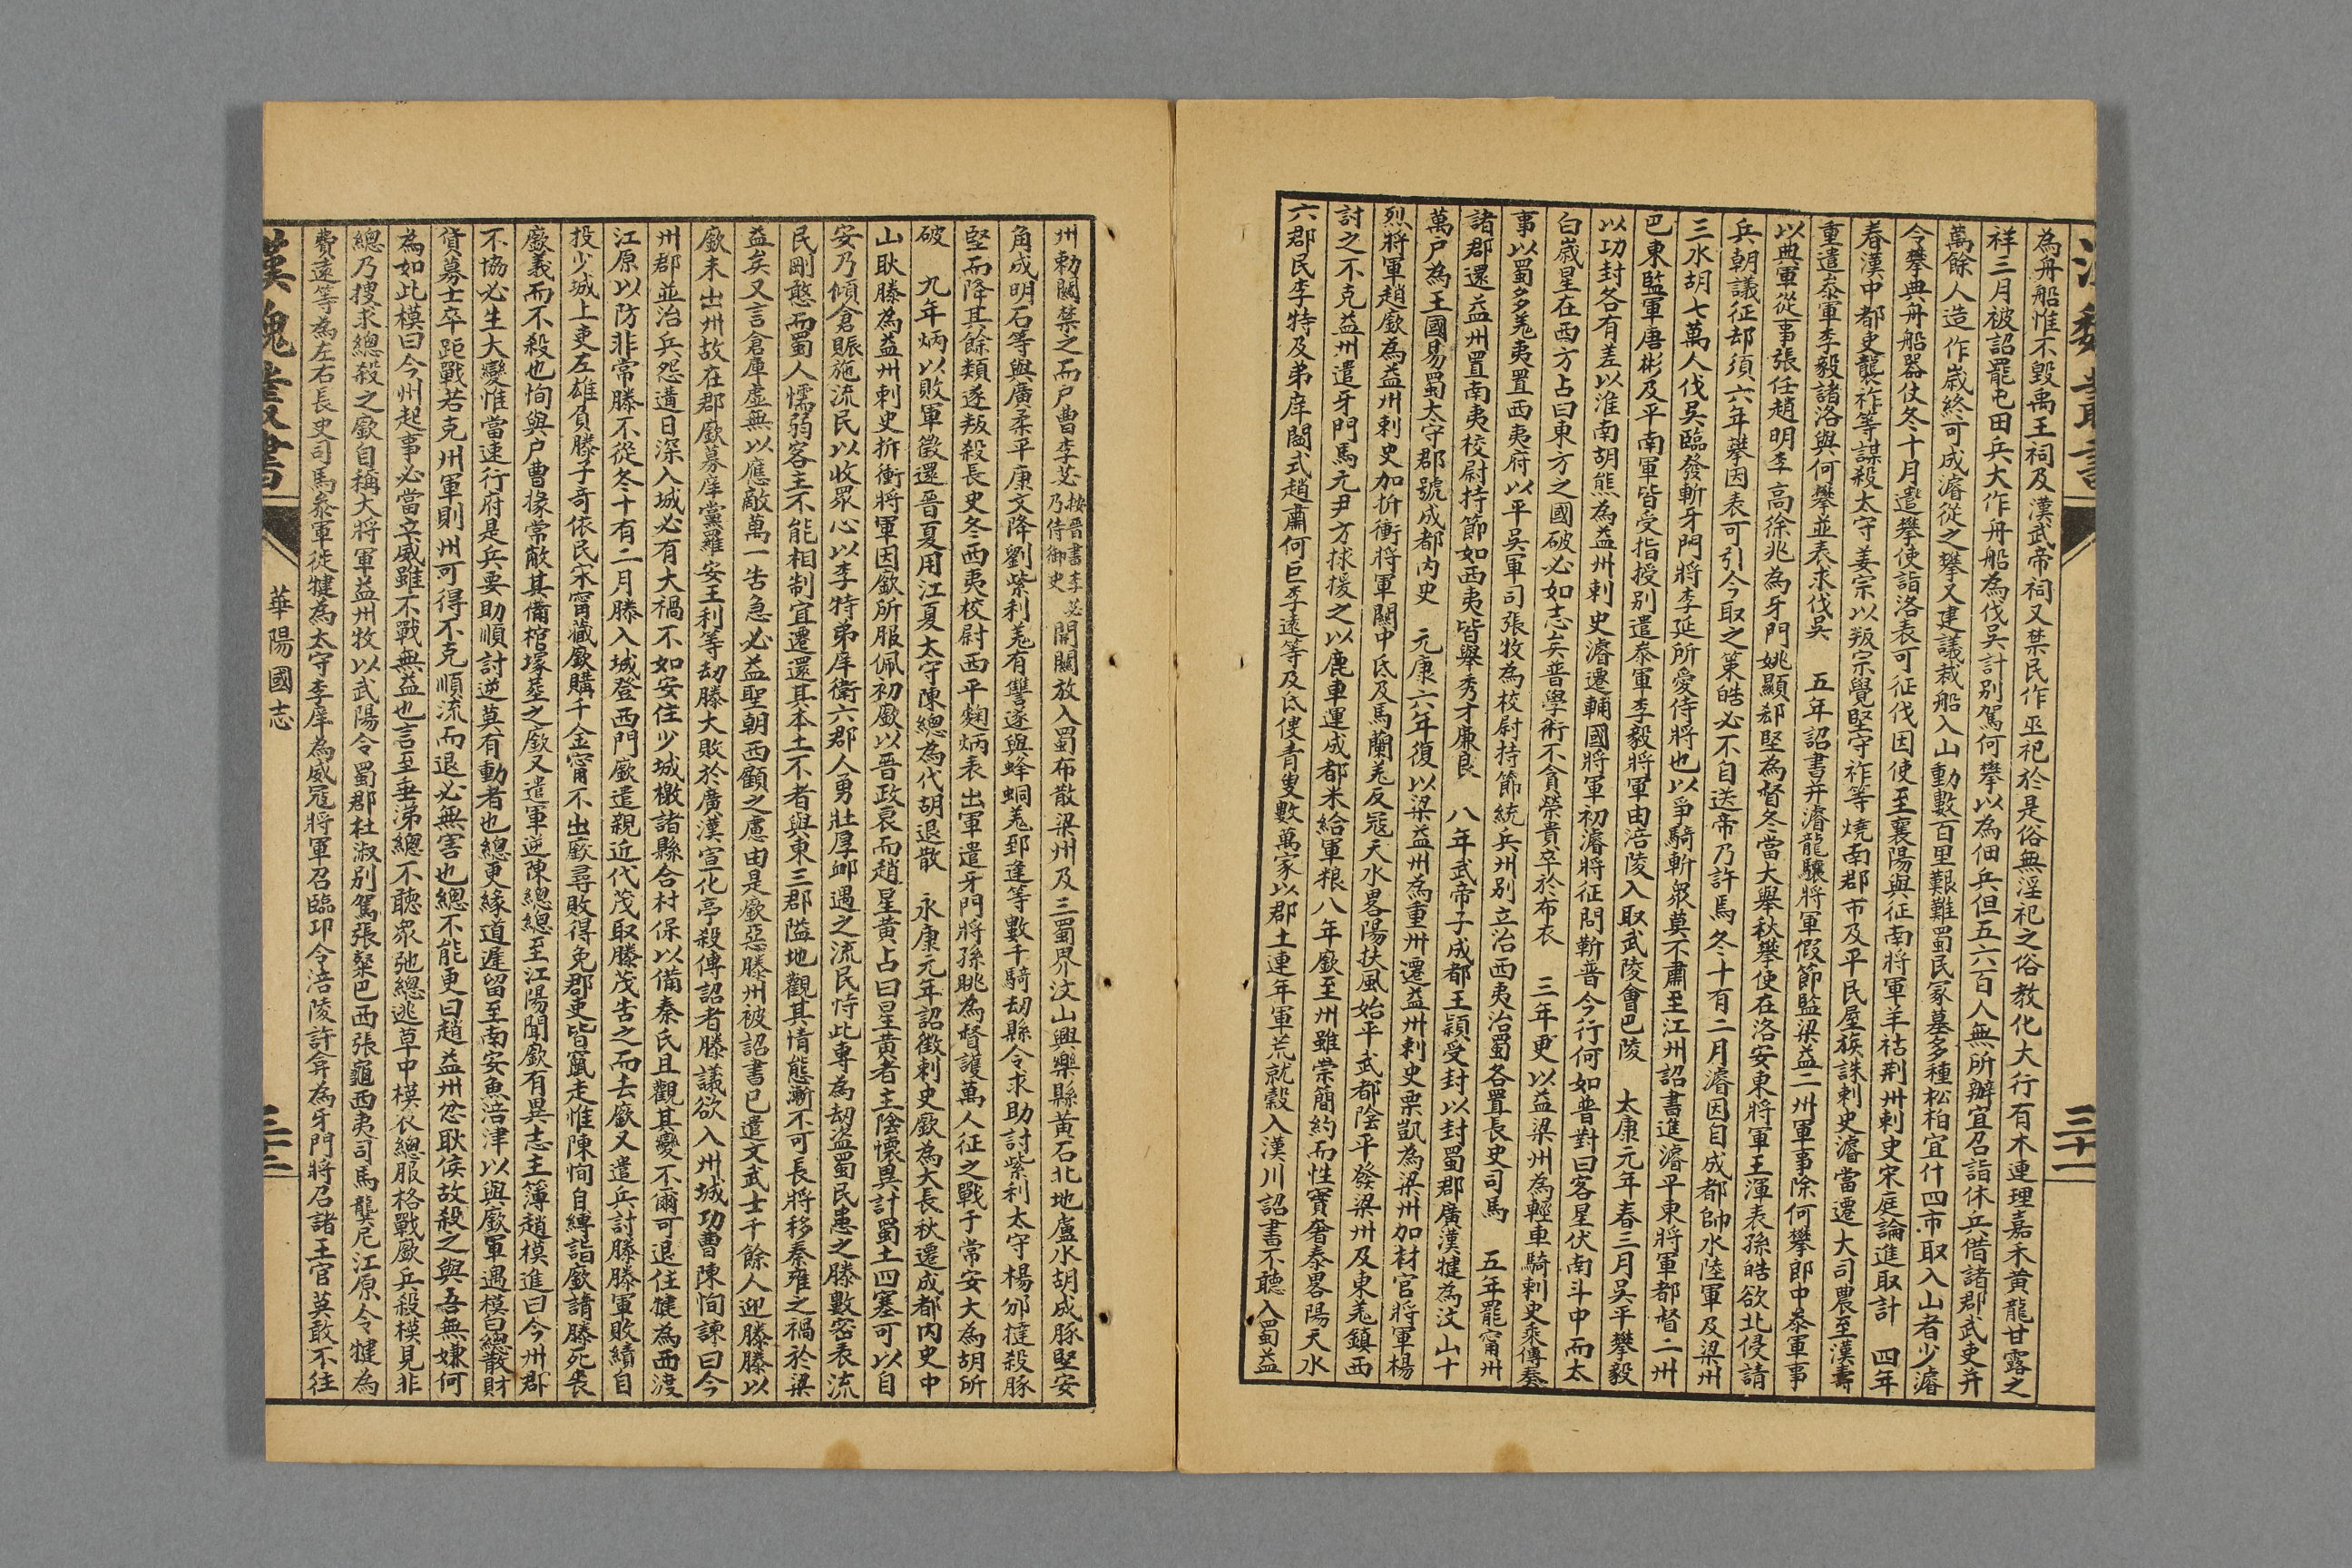 漢魏叢書
三十一
為舟船惟不毀禹王祠及漢武帝祠又禁民作巫祀於是俗無淫祀之俗教化大行有木連理嘉禾黃龍甘露之
祥三月被詔罷屯田兵大作舟船為伐吳計別駕何攀以為佃兵但五六百人無所辦宜召諸休兵借諸郡武吏并
萬餘人造作歲終可成濬從之攀又建議裁船入山動數百里艱難蜀民冢墓多種松柏宜什四市取入山者少濬
令攀典舟船器仗冬十月遣攀使詣洛表可征伐因使至襄陽與征南將軍羊祜荆州刺史宋庭論進取計　四年
春漢中都吏襲祚等謀殺太守姜宗以叛宗覺堅守祚等燒南郡市及平民屋族誅刺史濬當遷大司農至漢壽
重遣叅軍李毅諸洛與何攀並表求伐吳　五年詔書弄濬龍驤將軍假節監梁益二州軍事除何攀郎中叅軍事
以典軍從事張任趙明李高徐兆為牙門姚顯郄堅為督冬當大舉秋攀使在洛安東將軍王渾表孫皓欲北侵請
兵朝議征却須六年攀因表可引今取之策皓必不自送帝乃許焉冬十有二月濬因自成都帥水陸軍及梁州
三水胡七萬人伐吳臨發斬牙門將李延所愛侍將也以爭騎斬衆莫不肅至江州詔書進濬平東將軍都督二州
巴東監軍唐彬及平南軍皆受指授別遣叅軍李毅將軍由涪陵入取武陵會巴陵　太康元年春三月吳平攀毅
以功封各有差以淮南胡熊為益州刺史濬遷輔國將軍初濬將征問靳普今行何如普對曰客星伏南斗中而太
白歲星在西方占曰東方之國破必如志矣普學術不貪榮貴卒於布衣　三年更以益梁州為輕車騎刺史乘傳奏
事以蜀多羌夷置西夷府以平吳軍司張牧為校尉持節統兵州別立治西夷治蜀各置長史司馬　五年罷甯州
諸郡還益州置南夷校尉持節如西夷皆舉秀才廉良　八年武帝子成都王穎受封以封蜀郡廣漢犍為汶山十
萬戶為王國易蜀大守郡號成都内史　元康六年復以梁益州為重州遷益州刺史栗凱為梁州加材官將軍楊
烈將軍趙廞為益州刺史加折衝將軍關中氐及馬蘭羌反寇天水畧陽扶風始平武都陰平發梁州及東羌鎮西
討之不克益州遣牙門馬元尹方捄援之以鹿車運成都米給軍粮八年廞至州雖崇簡約而性實奢泰畧陽天水
六郡民李特及弟庠閻式趙肅何巨李遠等及氐傁青叟數萬家以郡土連年軍荒就穀入漢川詔書不聽入蜀益
州勅關禁之而戶曹李苾按晋書李苾乃侍御史開關放入蜀布散梁州及三蜀界汶山興樂縣黃石北地盧水胡成豚堅安
角成明石等與廣柔平康文降劉紫利羌有讐遂與蜂蜩羌郅逢等數千騎刼縣令求助討紫利太守楊邠撻殺豚
堅而降其餘類遂叛殺長史冬西夷校尉西平麴炳表出軍遣牙門將孫眺為督護萬人征之戰于常安大為胡所
破　九年炳以敗軍徵還晋夏用江夏太守陳總為代胡退散　永康元年詔徵刺史廞為大長秋遷成都内史中
山耿滕為益州刺史折衝將軍因廞所服佩初廞以晋政衰而趙星黃占曰星黃者王陰懷異計蜀土四塞可以自
安乃傾倉賑施流民以收眾心以李特弟庠衛六郡人勇壯厚䘏遇之流民恃此專為刼盜蜀民患之滕數密表流
民剛憨而蜀人懦弱客主不能相制宜遷還其本土不者與東三郡隘地觀其情態漸不可長將移秦雍之禍於梁
益矣又言倉庫虛無以應敵萬一告急必益聖朝西顧之慮由是廞惡滕州被詔書已遣文武士千餘人迎滕滕以
廞未出州故在郡廞募庠黨羅安王利等刼滕大敗於廣漢宣化亭殺傳詔者滕議欲入州城功曹陳恂諫曰今
州郡並治兵怨遘日深入城必有大禍不如安住少城檄諸縣合村保以備秦氏且觀其變不爾可退住犍為西渡
江原以防非常滕不從冬十有二月滕入城登西門廞遣親近代茂取滕茂告之而去廞又遣兵討滕滕軍敗績自
投少城上吏左雄負滕子奇依民宋甯藏廞購千金甯不出廞尋敗得免郡吏皆竄走惟陳恂自縛詣廞請滕死喪
廞義而不殺也恂與戶曹掾常敞其備棺塚葬之廞又遣軍逆陳總總至江陽聞廞有異志主簿趙模進曰今州郡
不協必生大變惟當速行府是兵要助順討逆莫有動者也總更緣道遲留至南安魚涪津以與廞軍遇模白總散財
貨募士卒距戰若克州軍則州可得不克順流而退必無害也總不能更曰趙益州忿耿侯故殺之與吾無嫌何
為如此模曰今州起事必當立威雖不戰無益也言至垂涕總不聽眾弛總逃草中模衣總服格戰廞兵殺模見非
總乃搜求總殺之廞自稱大將軍益州牧以武陽令蜀郡杜淑別駕張粲巴西張龜西夷司馬龔尼江原令犍為
費遠等為左右長史司馬叅軍徙犍為太守李庠為威寇將軍召臨邛令涪陵許弇為牙門將召諸王官莫敢不往
漢魏叢書
華陽國志
三十二